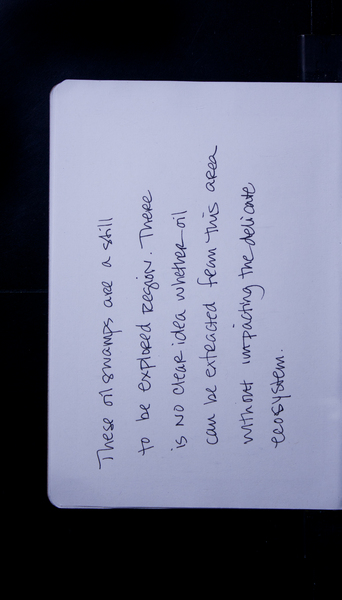 These oil swamps are a still
to be explored region. There
is no clear idea whether oil
can be extracted from this area
without impacting the delicate
ecosystem.